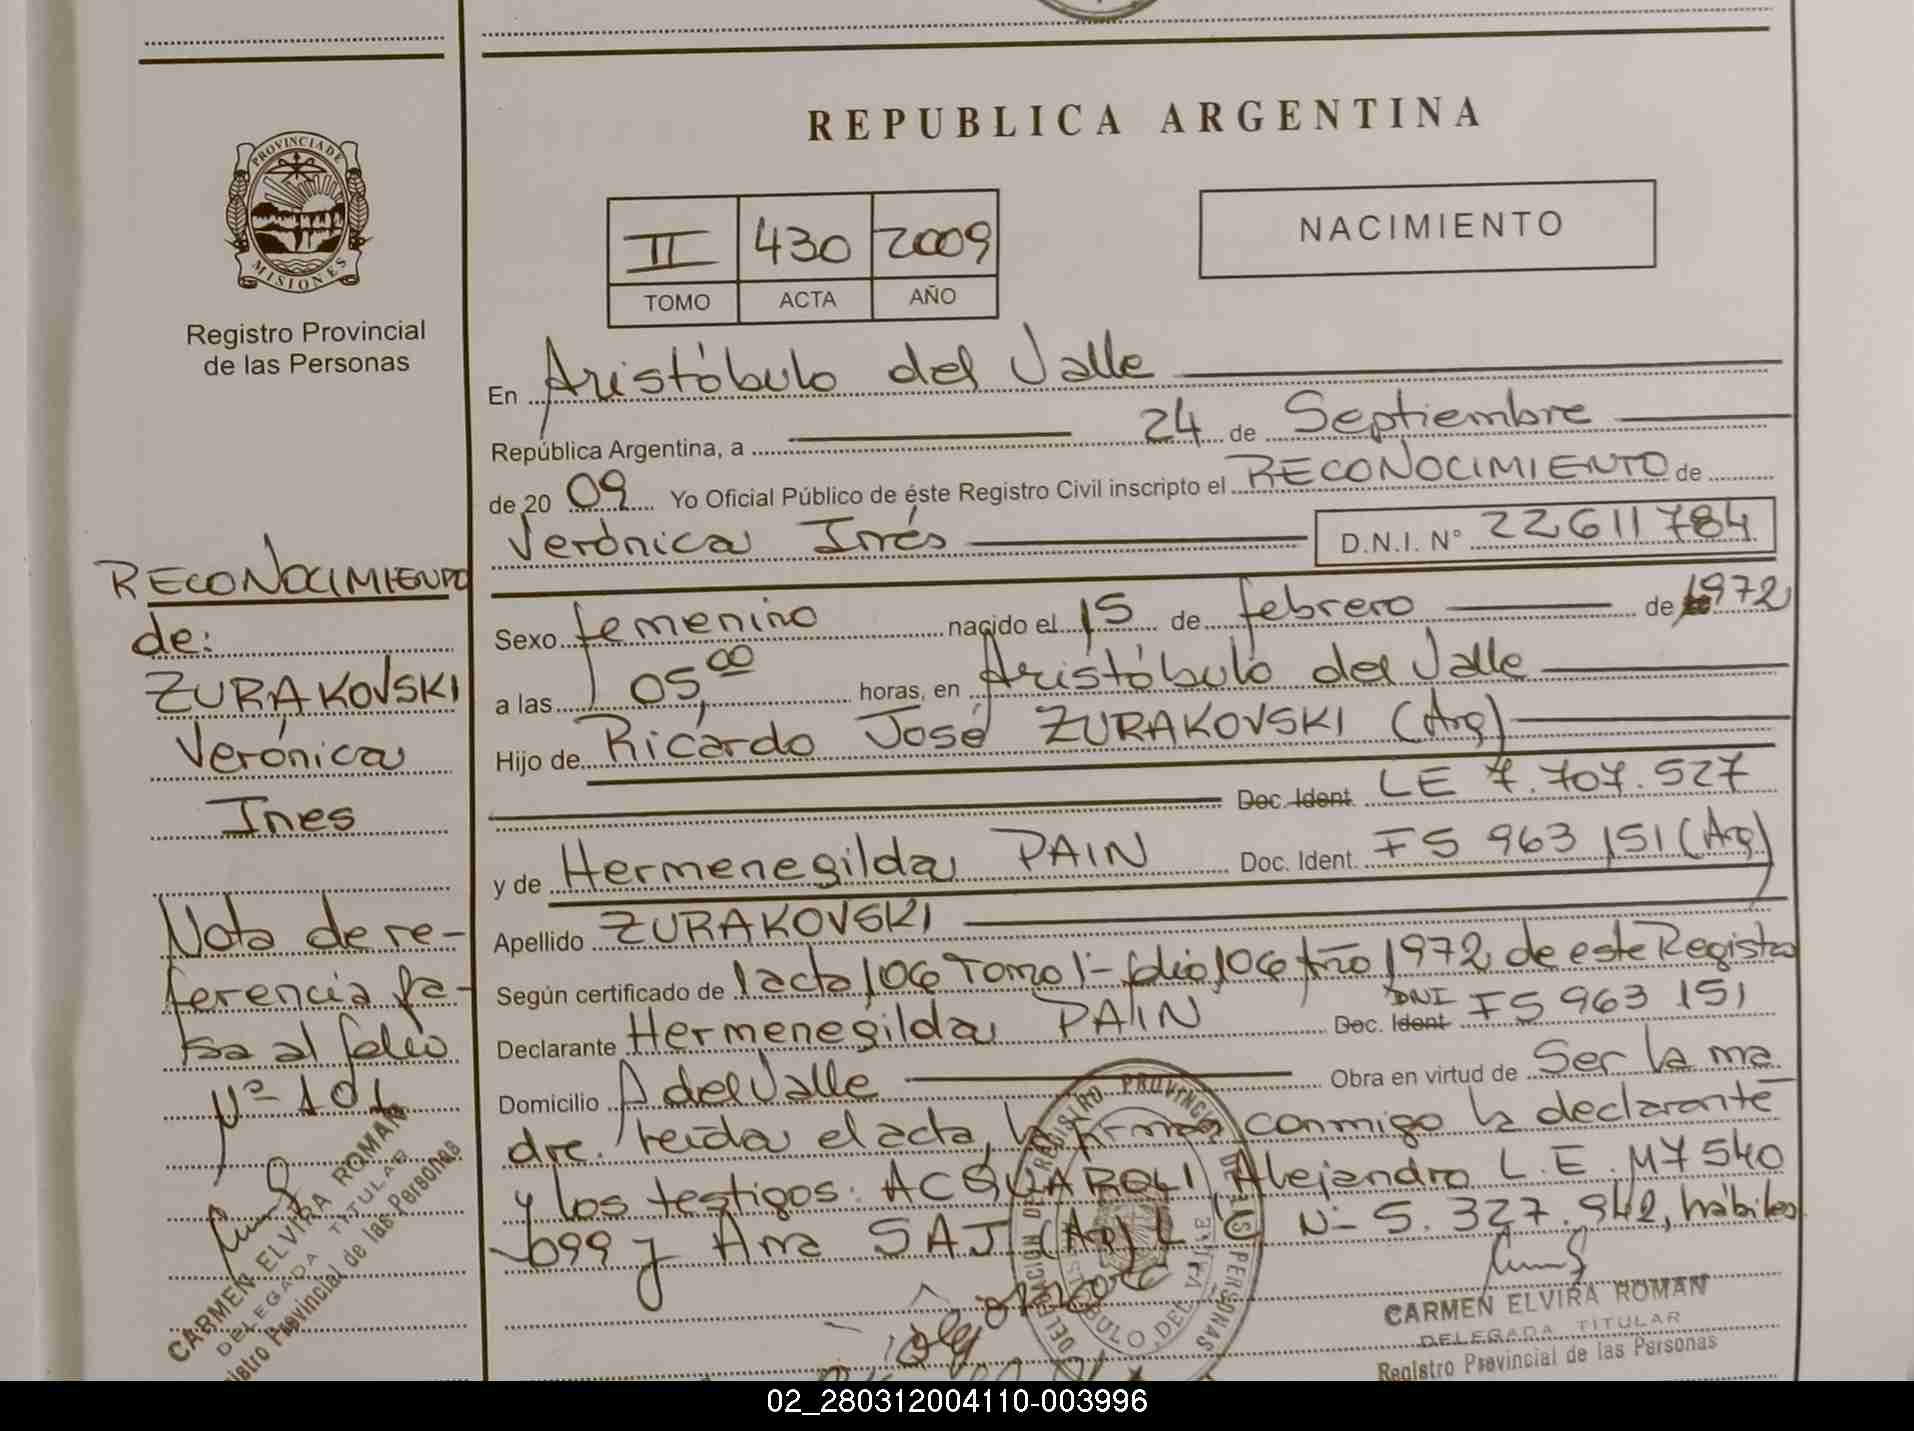 PROVINCIA DE
MISIONES
Registro Provincial
de las Personas
RECONOCIMIENTO
de:
ZURAKOVSKI
Verónica
Ines
Nota de re-
ferencia pa-
sa al folio
Nº 101
CARMEN ELVIRA ROMAN
DELEGADA TITULAR
Registro Provincial de las Personas
REPUBLICA ARGENTINA
II 430 2009
TOMO ACTA AÑO
NACIMIENTO
En Aristóbulo del Valle
República Argentina, a 24 de Septiembre
de 20 09 Yo Oficial Público de éste Registro Civil inscripto el RECONOCIMIENTO de
Verónica Inés D.N.I. N° 22611784
Sexo femenino nacido el 15 de febrero de 1972
a las 05,00 horas, en Aristóbulo del Valle
Hijo de Ricardo José ZURAKOVSKI (Arg)
Doc. Ident. LE 7.707.527
y de Hermenegilda PAIN Doc. Ident. F5 963 151 (Arg)
Apellido ZURAKOVSKI
Según certificado de 1 acta 106 Tomo 1- folio 106 Año 1972 de este Registro
Declarante Hermenegilda PAIN Doc. Ident DNI F5 963 151
Domicilio A del Valle Obra en virtud de Ser la ma
dre. leida el acta, la firman conmigo la declarante
y los testigos: ACQUAROLI, Alejandro L.E. M7540
099 y Ana SAJ (Arg) L C N- 5.327.942, hábiles
DELEGACION DE REGISTRO PROVINCIAL DE LAS PERSONAS
CARMEN ELVIRA ROMAN
DELEGADA TITULAR
Registro Provincial de las Personas
02_280312004110-003996